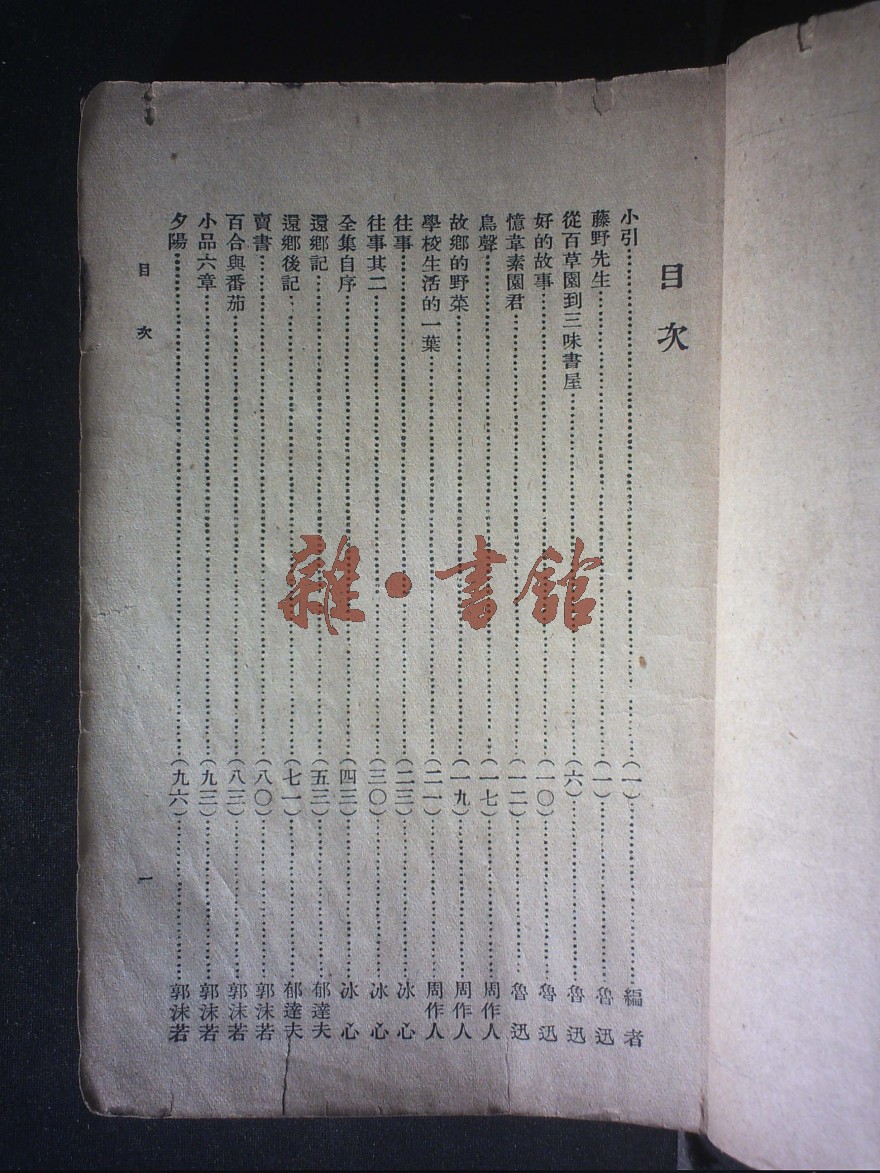 目次
小引……(一)……編者
藤野先生……(一)……魯迅
從百草園到三味書屋……(六)……魯迅
好的故事……(一〇)……魯迅
憶韋素園君……(一二)……魯迅
鳥聲……(一七)……周作人
故鄉的野菜……(一九)……周作人
學校生活的一葉……(二一)……周作人
往事……(二三)……冰心
往事其二……(三〇)……冰心
全集自序……(四三)……冰心
還鄉記……(五三)……郁達夫
還鄉後記……(七一)……郁達夫
賣書……(八〇)……郭沫若
百合與番茄……(八三)……郭沫若
小品六章……(九三)……郭沫若
夕陽……(九六)……郭沫若
目次 一
雜·書館